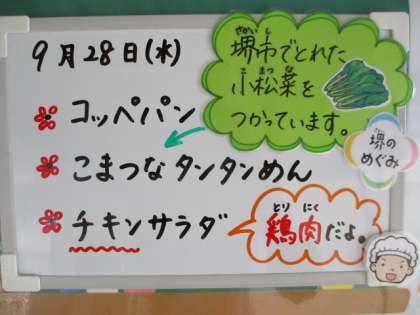 9月28日(水)
堺市でとれた
小松菜を
つかっています。
さかいし
こまつな
コッペパン
こまつなタンタンめん
チキンサラダ
とり にく
鶏肉だよ。
堺の
めぐみ